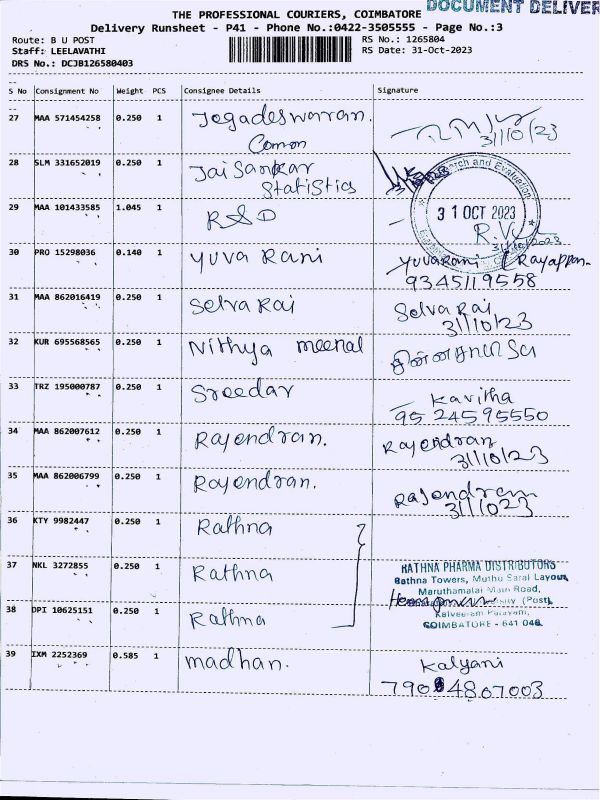 DOCUMENT DELIVER
THE PROFESSIONAL COURIERS, COIMBATORE
Delivery Runsheet - P41 - Phone No.:0422-3505555 - Page No.:3
Route: B U POST
RS No.: 1265804
Staff: LEELAVATHI
RS Date: 31-Oct-2023
DRS No.: DCJB126580403
S No Consignment No Weight PCS Consignee Details Signature
27 MAA 571454258 0.250 1 Jegadeswaran. 31/10/23
Comon
28 SLM 331652019 0.250 1 Jai Sankar
Statistics
29 MAA 101433585 1.045 1 R&D
31 OCT 2023
30 PRO 15298036 0.140 1 Yuva Rani Yuvarani (Rayappan.
9345119558
31 MAA 862016419 0.250 1 Selva Raj Selva Raj
31/10/23
32 KUR 695568565 0.250 1 Nithya meenal
33 TRZ 195000787 0.250 1 Sreedar Kavitha
95 24595550
34 MAA 862007612 0.250 1 Rajendran. Rajendran
31/10/23
35 MAA 862006799 0.250 1 Rajendran. Rajendram
31/1023
36 KTY 9982447 0.250 1 Rathna
37 NKL 3272855 0.250 1 Rathna
RATHNA PHARMA DISTRIBUTORS
Rathna Towers, Muthu Saral Layout,
Maruthamalai Main Road,
38 DPI 10625151 0.250 1 Rathna
(Post),
COIMBATORE - 641 046.
39 IXM 2252369 0.585 1 madhan. Kalyani